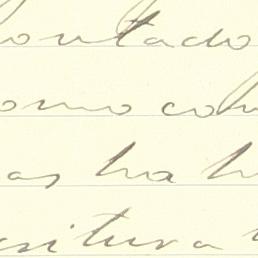 ontado
omo com
as ha h
critura